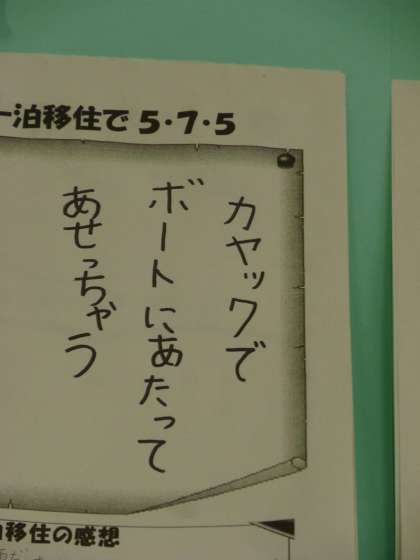 一泊移住で5・7・5
カヤックで
ボートにあたって
あせっちゃう
移住の感想